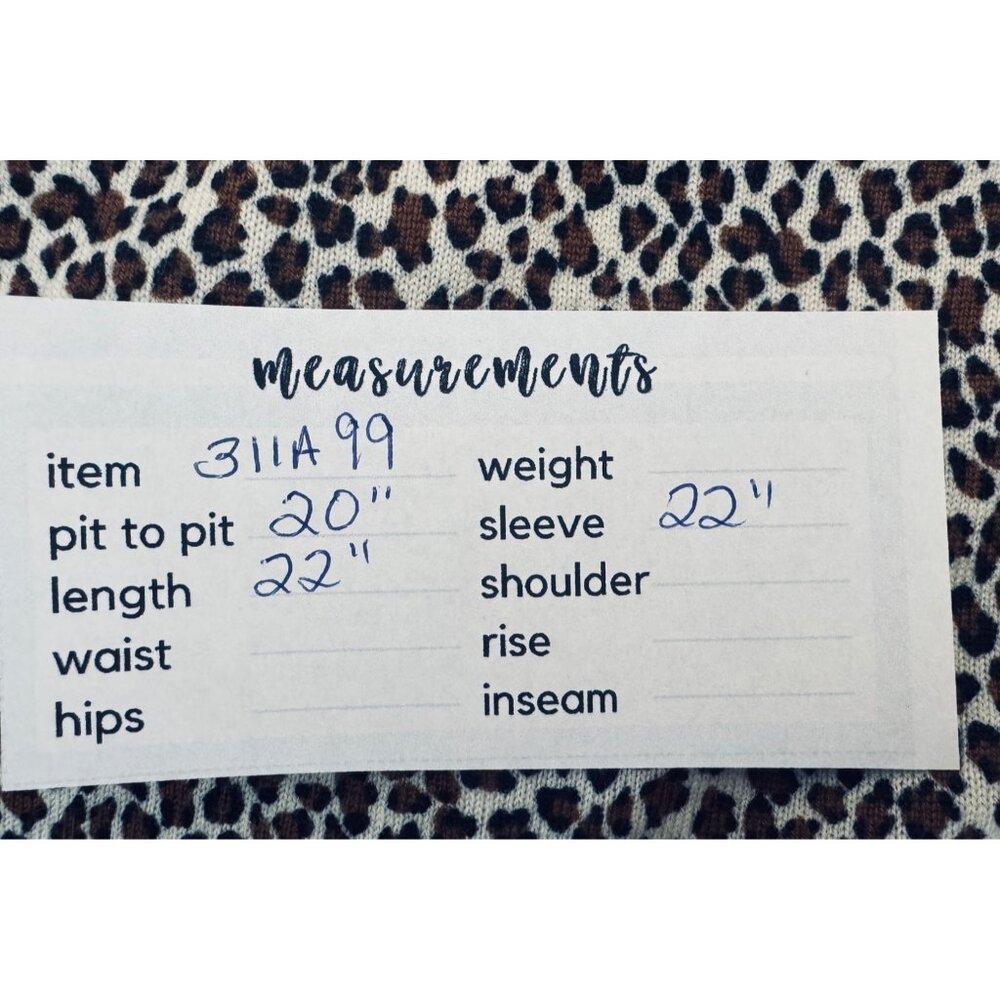 measurements
item 311A99
pit to pit 20"
length 22"
waist
hips
weight
sleeve 22"
shoulder
rise
inseam